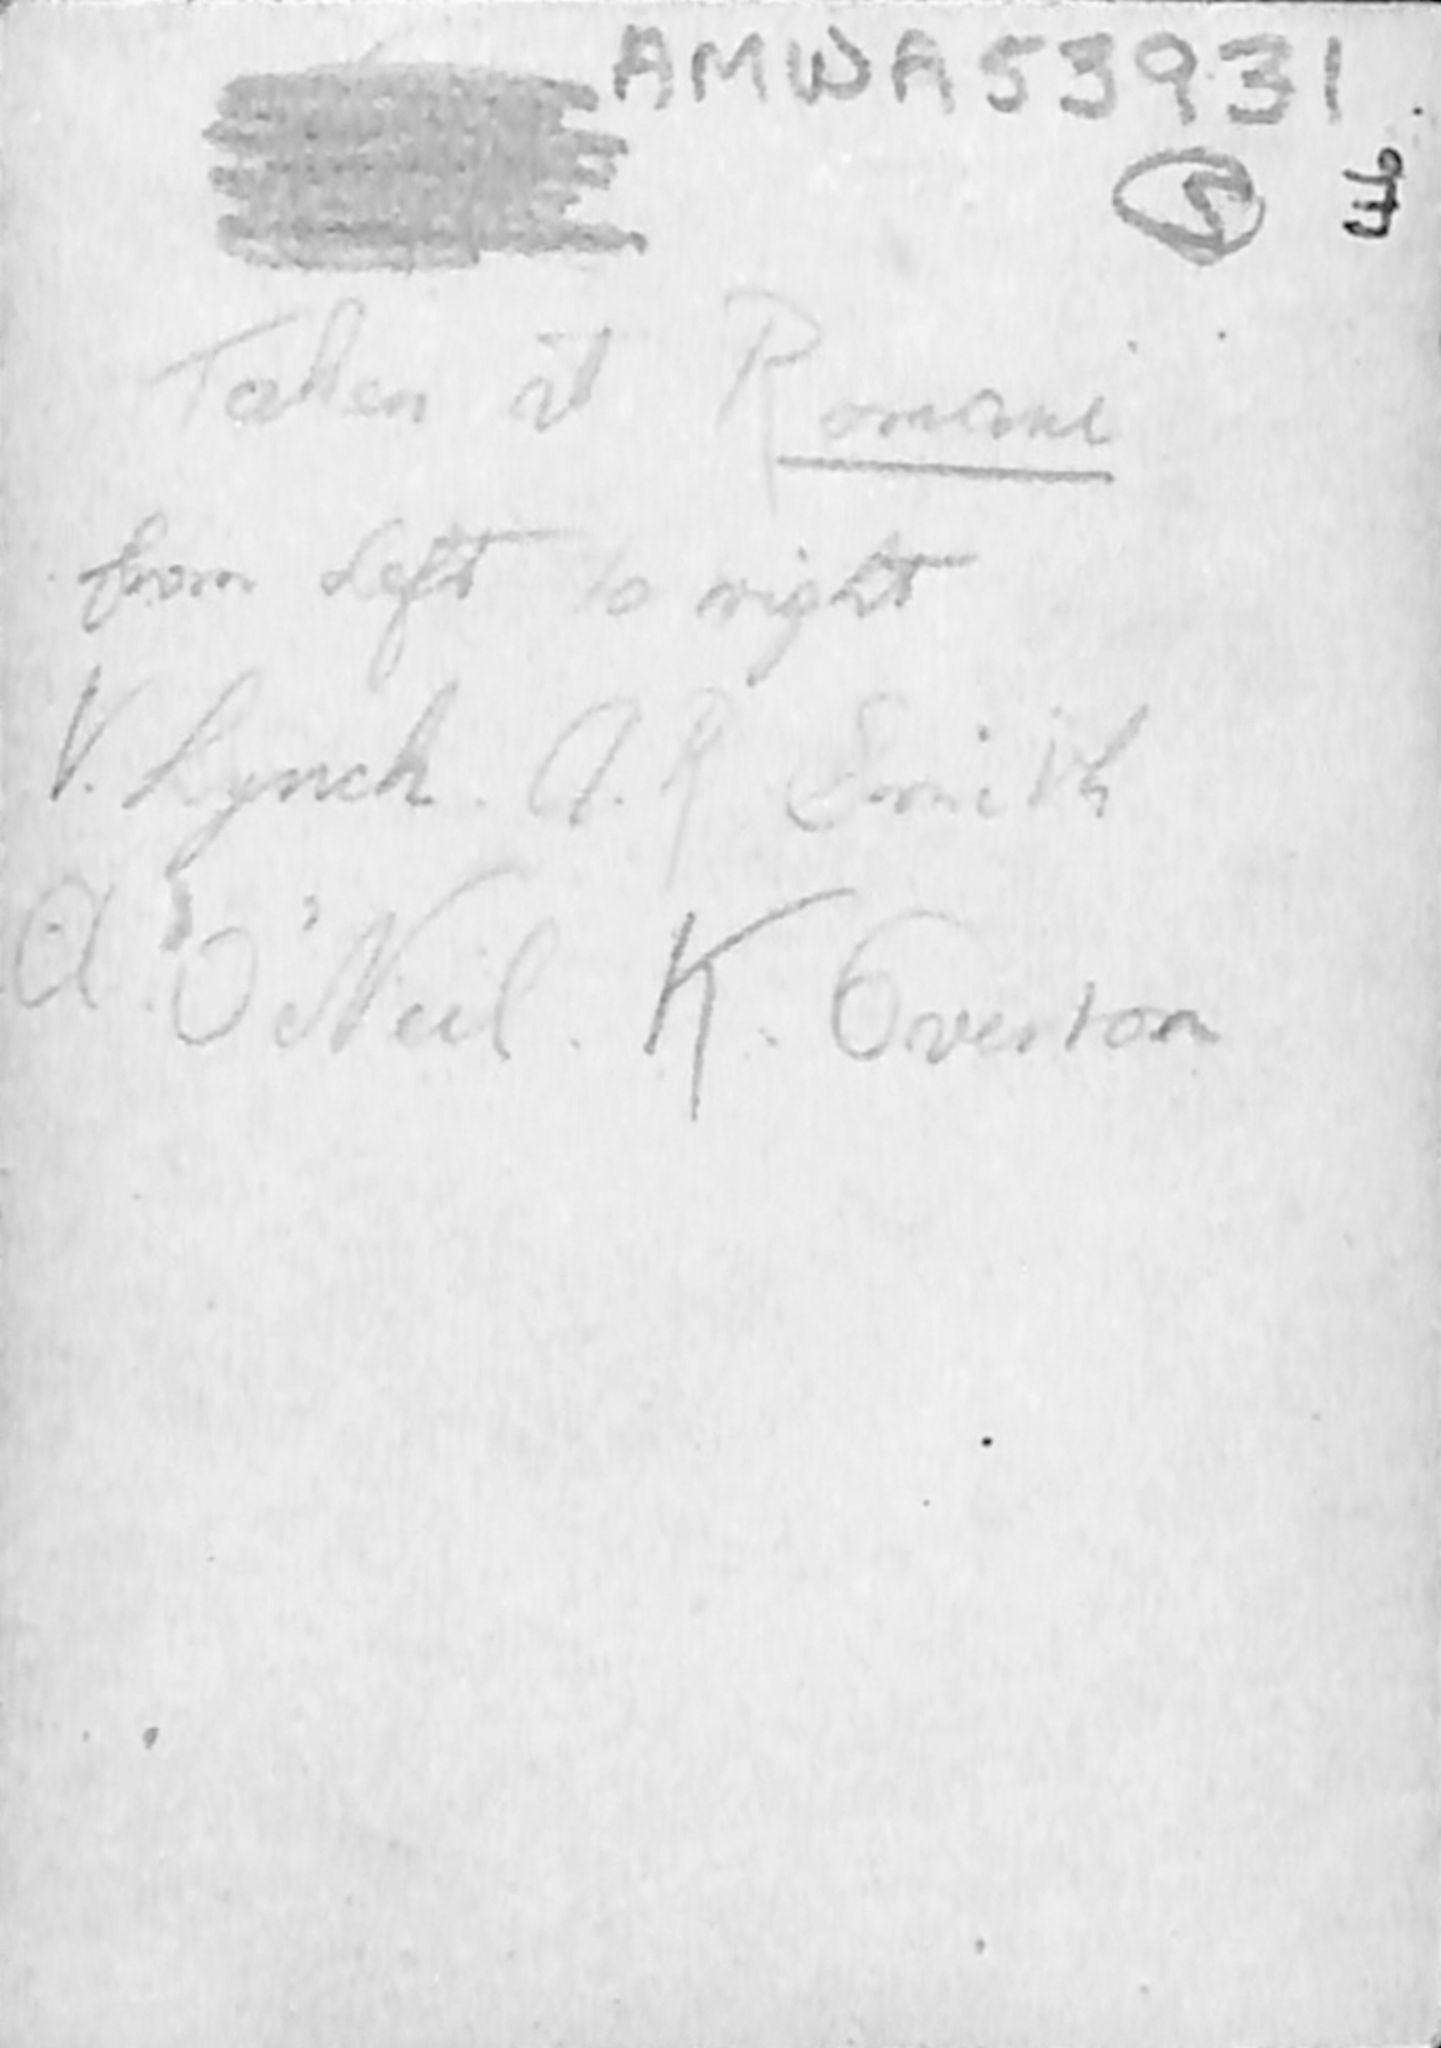 AMWA53931
5
Taken at Romani
from left to right
V. Lynch. A. R Smith
A. O'Neil. K. Overton